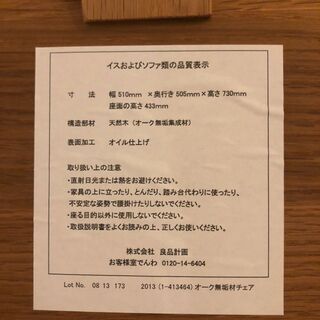 イスおよびソファ類の品質表示
寸　法　幅510mm ×奥行き505mm×高さ730mm
座面の高さ433mm
構造部材　天然木（オーク無垢集成材）
表面加工　オイル仕上げ
取り扱い上の注意
・直射日光または熱をお避けください。
・家具の上に立ったり、とんだり、踏み台代わりに使ったり、
不安定な姿勢で腰掛けたりしないでください。
・座る目的以外に使用しないでください。
・取扱説明書をよくお読みの上、正しくお使いください。
株式会社 良品計画
お客様室でんわ 0120-14-6404
Lot No. 08 13 173　2013 (1-413464) オーク無垢材チェア